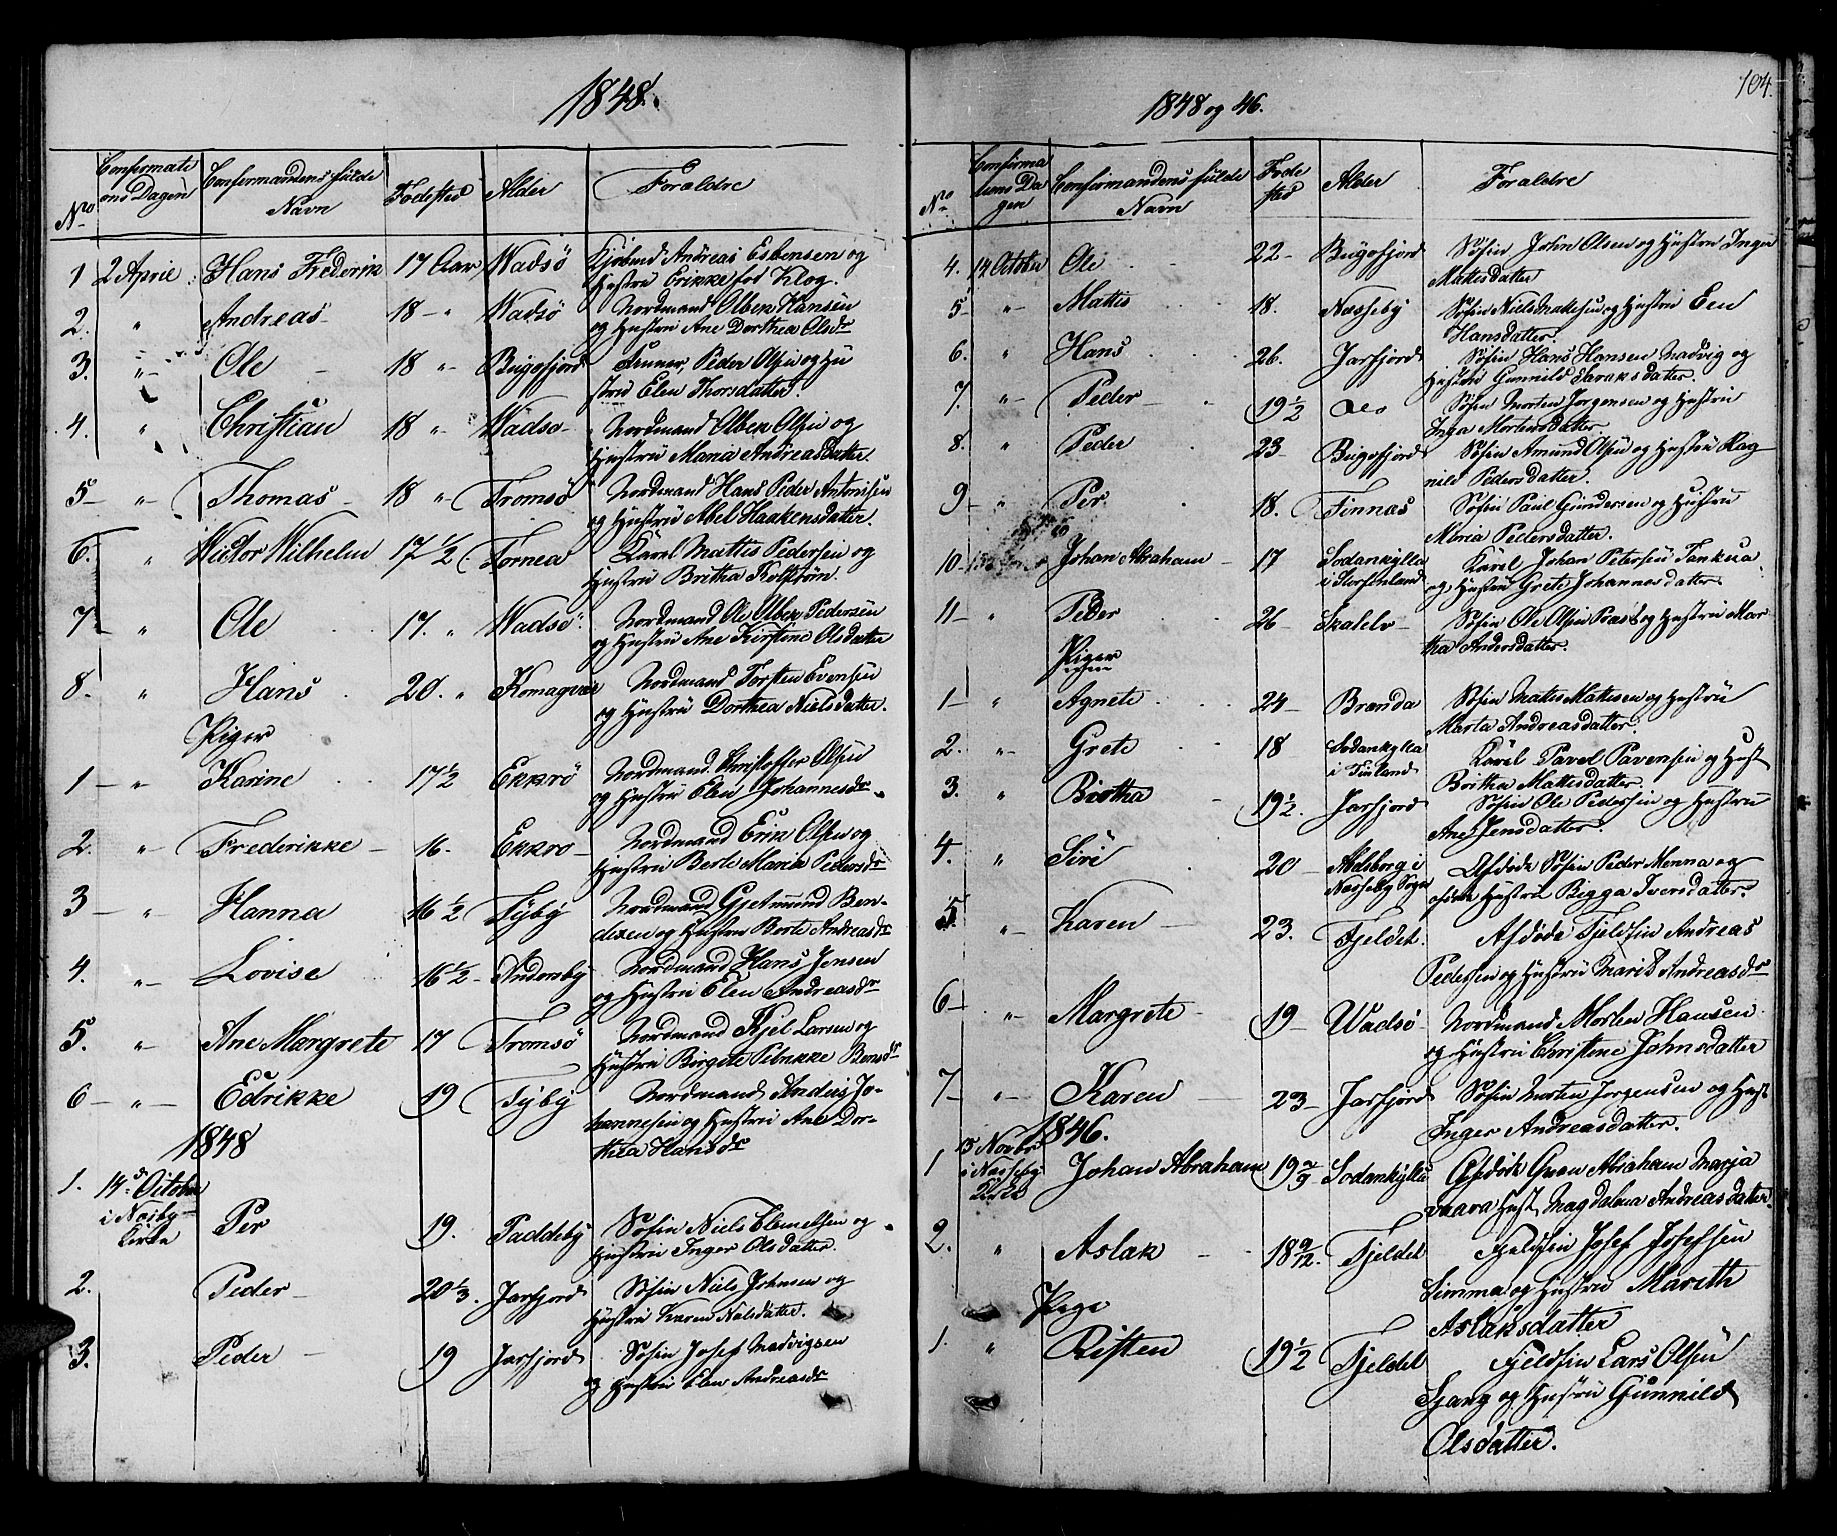 1848.
No
Confirmati
ons Dagen
Confirmandens fulde
Navn
Fødested
Alder
Forældre
1 2 April Hans Frederik 17 Aar Wadsö Kjøbmd Andreas Esbensen og
Hustru Erikke fød Klog.
2. " Andreas 18 - " Wadsö Nordmand Olben Hansen
og Hustru Ane Dorthea Olsdr
3. " Ole 18 " Bugofjord Peder Olsen og Hu
stru Elen Thorsdatter.
4. " Christian 18 " Wadsö Nordmand Olben Olsen og
Hustru Maria Andreasdatter.
5 " Thomas 18 " Tromsö Nordmand Hans Peder Antonisen
og Hustru Abel Haakensdatter.
6. " Victor Wilhelm 17 1/2 Tornea Kävel Mattis Pedersen og
Hustru Britha
7 " Ole 17. " Wadsö Nordmand Ole Olben Pedersen
og Hustru Ane Kirstine Olsdatter
8. " Hans 20. " Komagvær Nordmand Torsten Evensen
og Hustru Dorthea Nielsdatter.
Piger
1 " Karine 17 1/2 Ekkrö Nordmand Christoffer Olsen
og Hustru Elen Johannesdr
2. " Frederikke 16. Ekkrö Nordmand Erik Olsen og
Hustru Berte Maria Pedersdr
3 " Hanna 16 1/2 Tyby Nordmand Gjetmund Ben-
dixen og Hustru Berte Andreasdr
4. " Lovise 16 1/2 Andersby Nordmand Hans Jensen
og Hustru Elen Andreasdr
5. " Ane Margrete 17 Tromsö Nordmand Kjel Larsen og
Hustru Birgete Petrikke Bensdr
6 " Edrikke 19 Tyby Nordmand Anders Jo-
hannesen og Hustru Ane Dor-
thea Hansdr
1848
1. 14d Octobr
i Nesby
Kirke
Per 19. Paddeby Søfin Niels Clemetsen og
Hustru Inger Olsdatter.
2. Peder 20 1/3. Jarfjord Søfin Niels Johnsen og
Hustru Karen Nilsdatter.
3. Peder 19 Jarfjord Søfin Josef Madvigsen
og Hustru Elen Andreasdr
1848 og 46.
104.
No
Confirma
tions Da
gen
Confirmandens fulde
Navn
Føde
sted
Alder
Forældre
4. 14 Octobr Ole 22 Bugofjord Søfin John Olsen og Hustru Inger
Mattisdatter
5 " Mattis 18. Nasseby Søfin Niels Mathesen og Hustru Elen
Hansdatter.
6. " Hans 26. Jarfjord Søfin Hans Hansen Madvig og
Hustru Gunnild Saraksdatter.
7. " Peder 19 1/2 do Søfin Morten Jørgensen og Hustru
Inga Mortensdatter
8. " Peder 23 Bugofjord Søfin Amund Olsen og Hustru Rag
nild Pedersdatter.
9 " Per 18. Finnæs Søfin Paul Gundersen og Hustru
Maria Pedersdatter.
10 Johan Abraham 17 Sodankylla
i Storfinland
Kävel Johan Petersen Tankua
og Hustru Grete Johannesdatter
11 " Peder 26 Skalelv Søfin Ole Olsen Baas og Hustru Mar
tha Andersdatter.
Piger
1 " Agnete 24 Branda Søfin Mattis Mattesen og Hustru
Marta Andreasdatter.
2. " Grete 18 Sodankylla
i Finland
Kävel Pavel Pavensen og Hust
Britha Mattisdatter.
3. " Britha 19 1/2. Jarfjord Søfin Ole Pedersen og Hustru
Ane Jensdatter.
4. " Siri 20 Abelsborg i
Nasseby Sogn
Afdøde Søfin Peder Menna og
Hustru Bigga Iversdatter.
5. " Karen 23. Fjeldet Afdøde Fjeldfin Andreas
Pedersen og Hustru Marit Andreasdr
6 " Margrete 19 Wadsö Nordmand Morten Hansen
og Hustru Christene Johnsdatter
7 " Karen 23 Jarfjord Søfin Morten Jørgensen og Hust
Inger Andreasdatter.
1846.
1 15 Novbr
i Nasseby
Kirke
Johan Abraham 19 Sodankylla Afdøde Qvæn Abraham Marja
vaara Hust Magdalena Andreasdatter.
2. " Aslak 18 Fjeldet Fjeldfin Josef Josefsen
Simma og Hustru Mareth
Aslaksdatter
Pige
1. " Risten 19 1/2 Fjeldet Fjeldfin Lars Olsen
Sjang og Hustru Gunnild
Olsdatter.